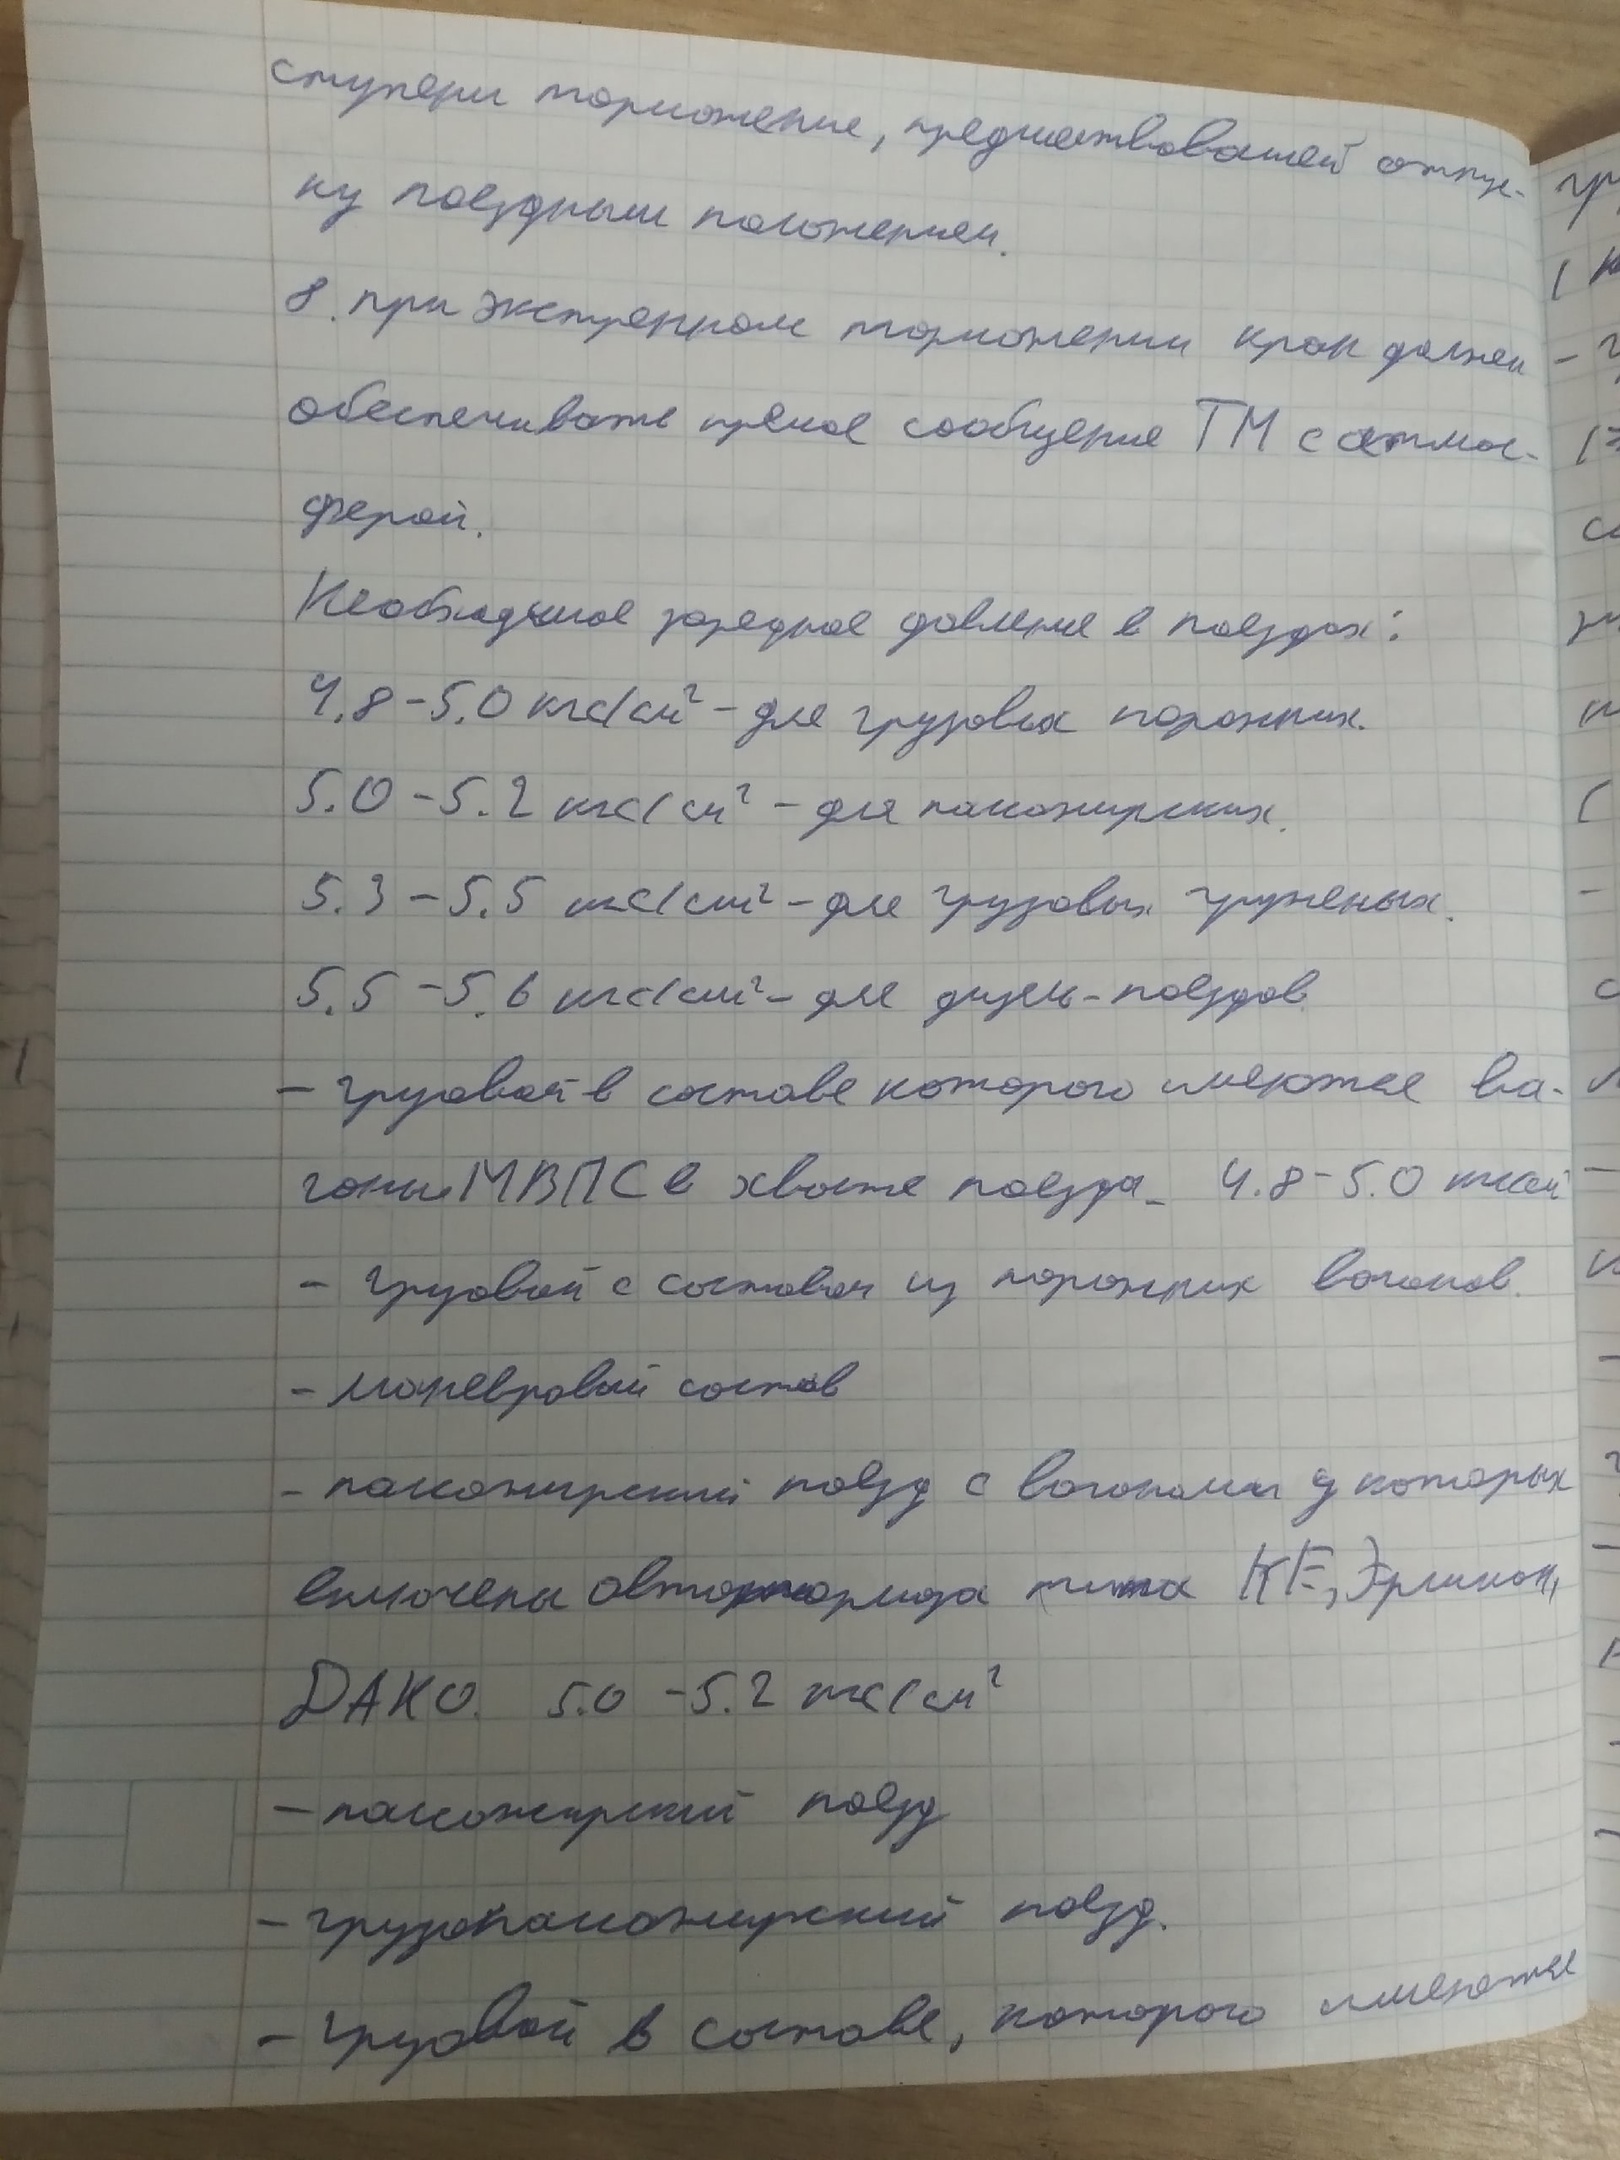 ступени торможение, предшествовавшей отпус-
ку поездным положением.
8. при экстренном торможении кран должен
обеспечивать прямое сообщение ТМ с атмос-
ферой.
Необходимое зарядное давление в поездах:
4.8-5.0 кгс/см² - для грузовых порожних.
5.0 - 5.2 кгс/см² - для пассажирских.
5.3 - 5.5 кгс/см² - для грузовых груженых.
5.5 - 5.6 кгс/см² - для дизель-поездов
- грузовой в составе которого имеются ва-
гоны МВПС в хвосте поезда - 4.8-5.0
- грузовой с составом из порожних вагонов.
- маневровый состав
- пассажирский поезд с вагонами у которых
включены автотормоза типа КЕ, Эрликон,
ДАКО. 5.0 - 5.2 кгс/см²
- пассажирский поезд
- грузопассажирский поезд.
- грузовой в составе, которого имеются